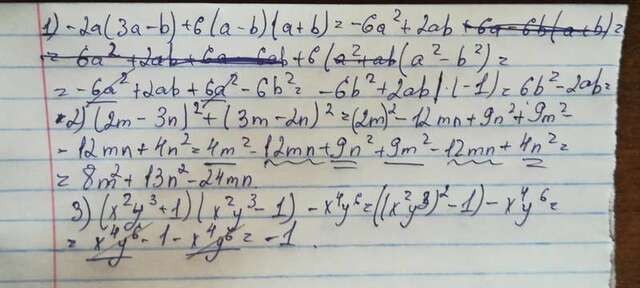 1) -2a(3a-b)+6(a-b)(a+b)= -6a²+2ab +6a-6b(a+b)=
= 6a²+2ab+6a-6ab+6(a²+ab(a²-b²)=
= -6a²+2ab+6a²-6b²= -6b²+2ab|·(-1)=6b²-2ab=
2) (2m-3n)²+(3m-2n)²=(2m)²-12mn+9n²+9m²-
-12mn+4n²=4m²-12mn+9n²+9m²-12mn+4n²=
= 8m²+13n²-24mn.
3) (x²y³+1)(x²y³-1)-x⁴y⁶=((x²y³)²-1)-x⁴y⁶=
= x⁴y⁶-1-x⁴y⁶= -1.